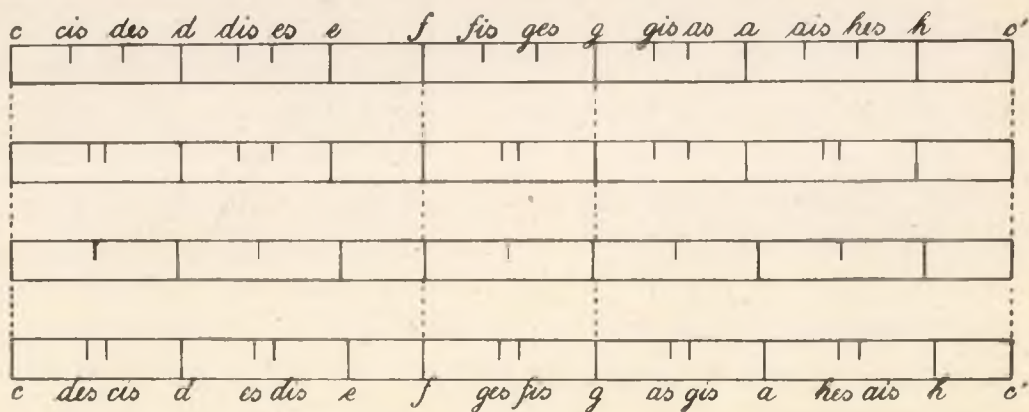 c cis des d dis es e f fis ges g gis as a ais hes h c'
c des cis d es dis e f ges fis g as gis a hes ais h c'